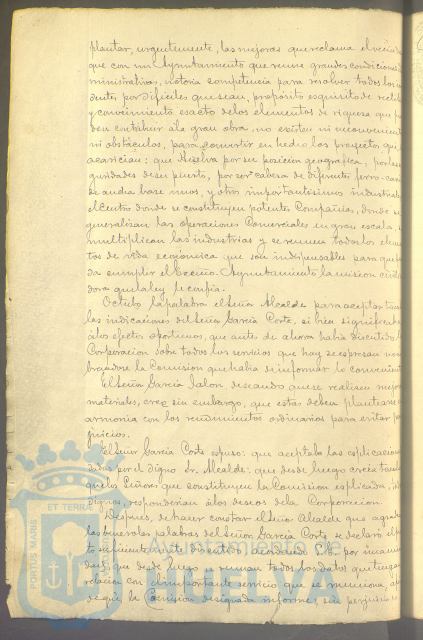 plantar, urgentemente, las mejoras que reclama el vecinda
que con un Ayuntamiento que reune grandes condiciones
ministrativas, notoria competencia para resolver todos los
dentes por dificiles que sean, propósito esquisito de
y conocimiento exacto de los elementos de riqueza que
den contribuir á la gran obra, no existen ni inconvenientes
ni obstáculos, para convertir en hecho los proyectos que
acarician: que Huelva por su posicion geografica; por las
guidades de su puerto, por ser cabeza de diferentes ferro-carri
de ancha base unos, y otros importantisimos industriales
el Centro donde se constituyen potentes Compañias, donde se
generalizan las operaciones Comerciales en gran escala, se
multiplican las industrias y se reunen todos los elemen
tos de vida económica que son indispensables para que
da cumplir el Excmo. Ayuntamiento la mision
dora que la ley le confia.
la palabra el Señor Alcalde para aceptar
las indicaciones del Señor Garcia Cortes, si bien significando
á los efectos oportunos, que antes de ahora habia discutido la
Corporacion sobre todos los servicios que hoy se espresan
brandose la Comision que habia de informar lo conveniente
El Señor Garcia Jalon, deseando que se realicen mejoras
materiales, cree sin embargo, que estas deben plantearse en
armonia con los rendimientos ordinarios para evitar per
juicios.
El Señor Garcia Cortes espuso: que aceptaba las esplicaciones
dadas por el digno Sr. Alcalde; que desde luego creia
que los Señores que constituyen la Comision esplicada,
dignos responderian á los deseos de la Corporacion.
Despues, de hacer constar el Señor Alcalde que
las benevolas palabras del Señor Garcia Cortes se declaró el pun
to suficientemente discutido acordando S.E. por unanimi
dad que desde luego se reunan todos los datos que tengan
relacion con el importante servicio que se menciona,
de que la Comision designada informe, sin perjuicio
PORTUS MARIS ET TERRÆ
Ayuntamiento de